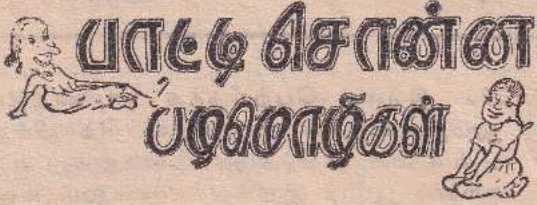 பாட்டி சொன்ன
பழமொழிகள்